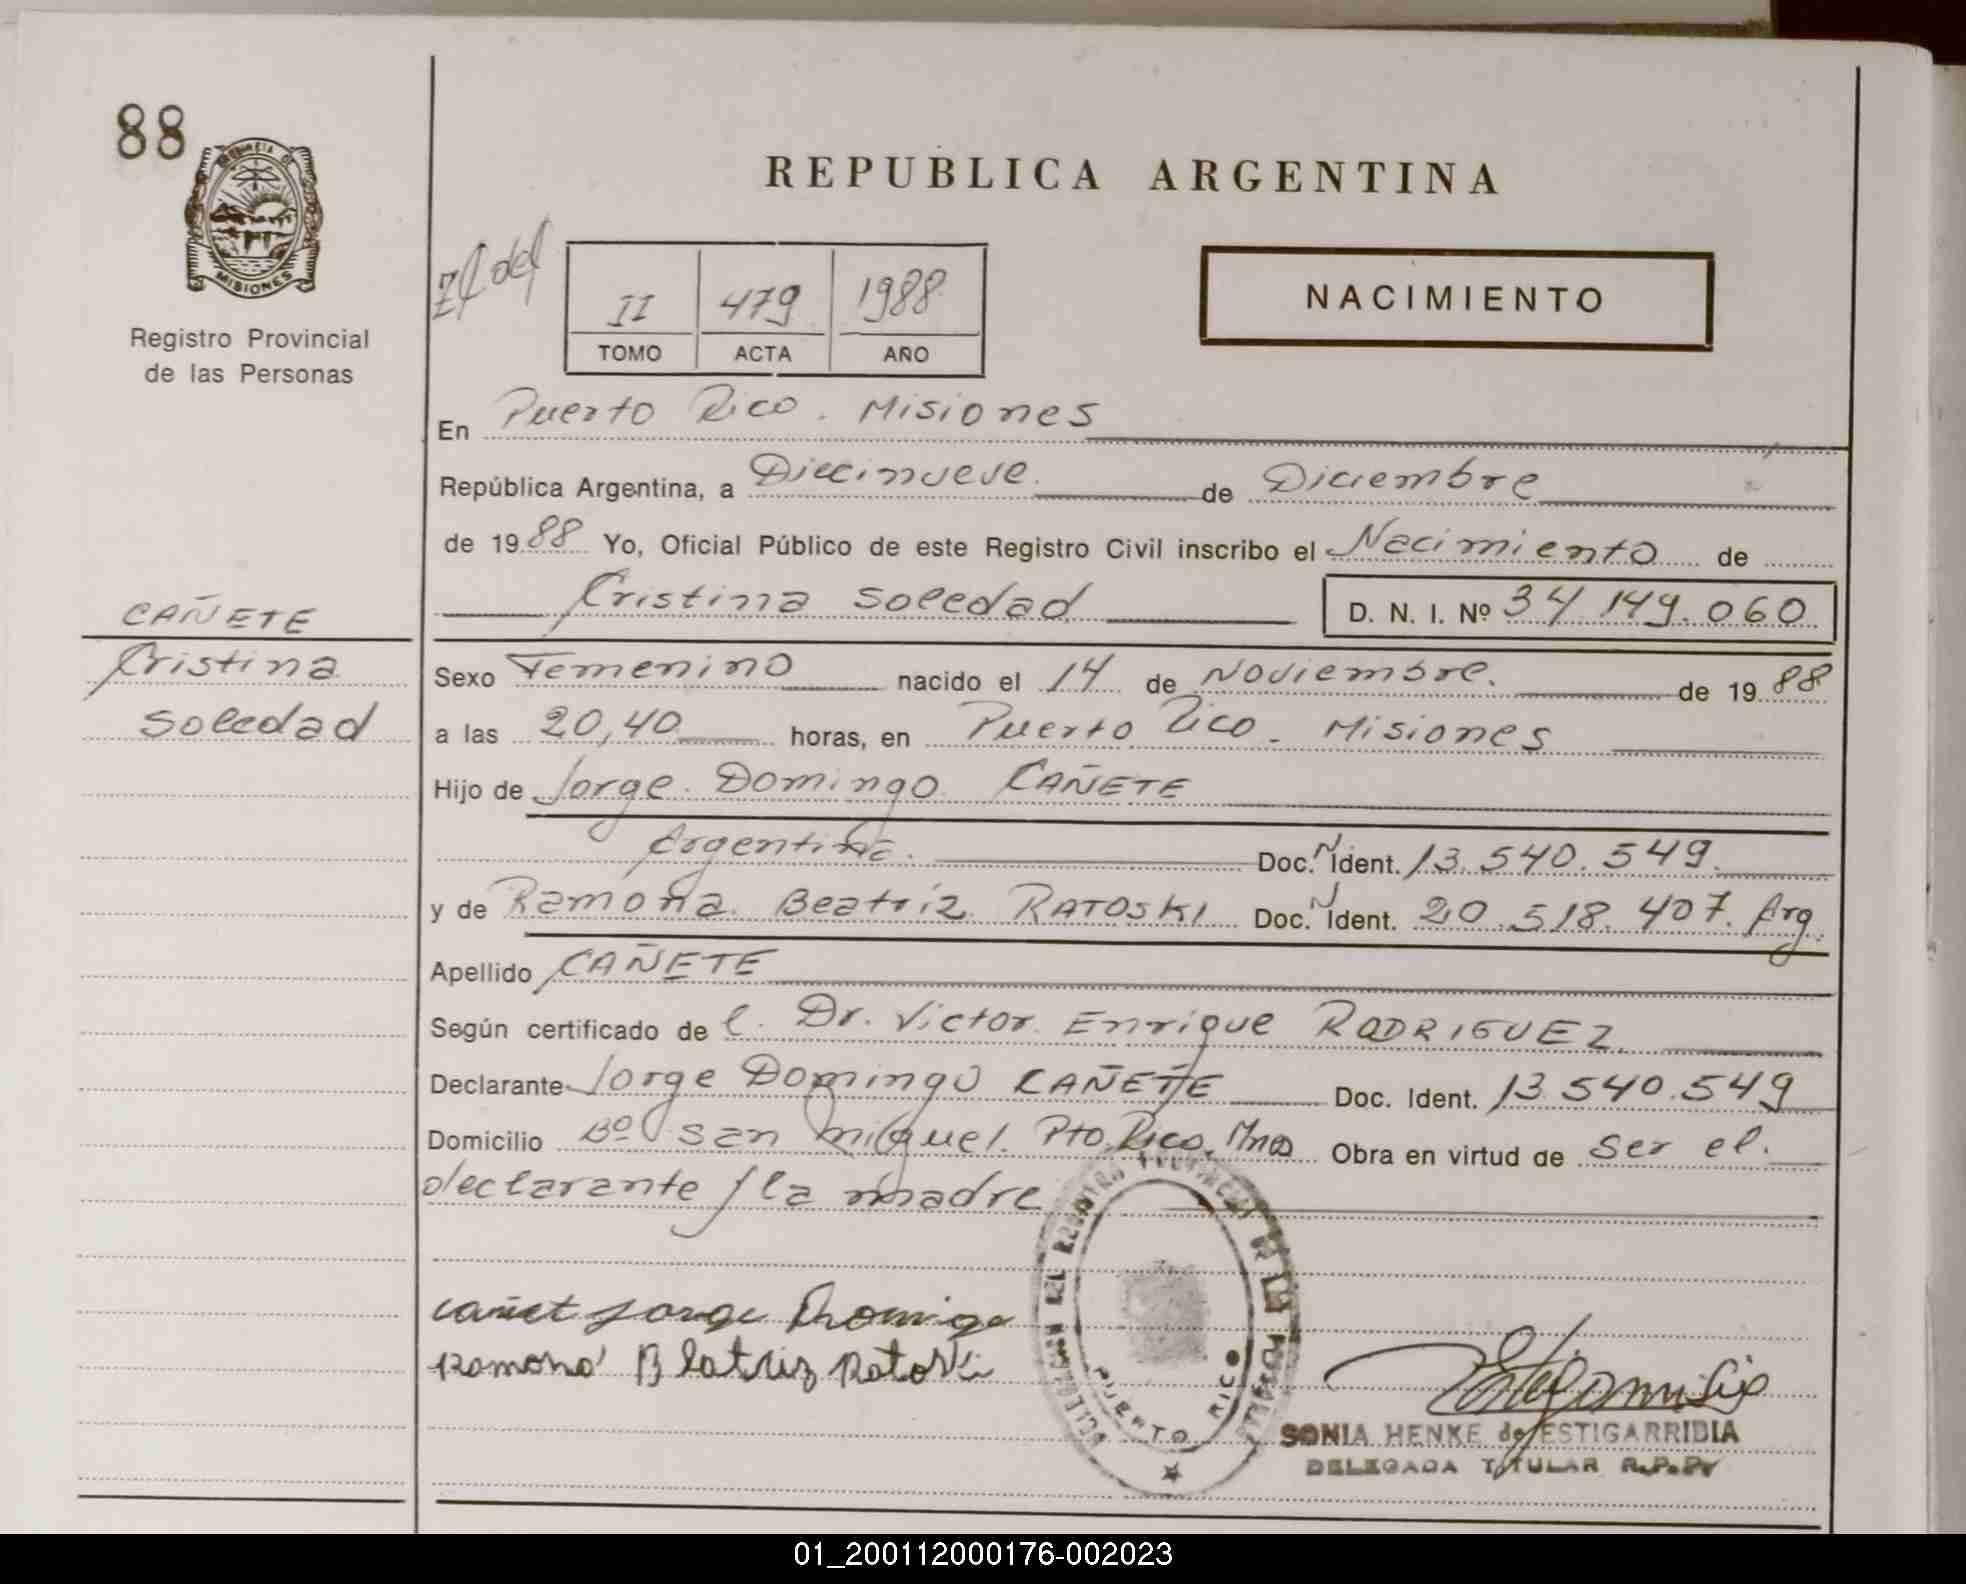 88
PROVINCIA DE
MISIONES
Registro Provincial
de las Personas
REPUBLICA ARGENTINA
II 479 1988
TOMO ACTA AÑO
NACIMIENTO
En Puerto Rico. Misiones
República Argentina, a Diecinueve. de Diciembre
de 1988 Yo, Oficial Público de este Registro Civil inscribo el Nacimiento de
Cristina Soledad D. N. I. Nº 34 149.060
CAÑETE
Cristina
Soledad
Sexo Femenino nacido el 14 de Noviembre. de 1988
a las 20,40 horas, en Puerto Rico. Misiones
Hijo de Jorge Domingo CAÑETE
Argentina. Doc. Ident. 13.540.549.
y de Ramona Beatríz RATOSKI Doc. Ident. 20.518.407. Arg.
Apellido CAÑETE
Según certificado de l. Dr. Victor Enrique RODRIGUEZ.
Declarante Jorge Domingo CAÑETE Doc. Ident. 13.540.549
Domicilio Bº San Miguel. Pto. Rico. Mnes Obra en virtud de ser el.
declarante / la madre
cañet Jorge Domingo
Ramona Beatriz Ratoski
PUERTO RICO
SONIA HENKE de ESTIGARRIBIA
DELEGADA TITULAR R.P.P.
01_200112000176-002023